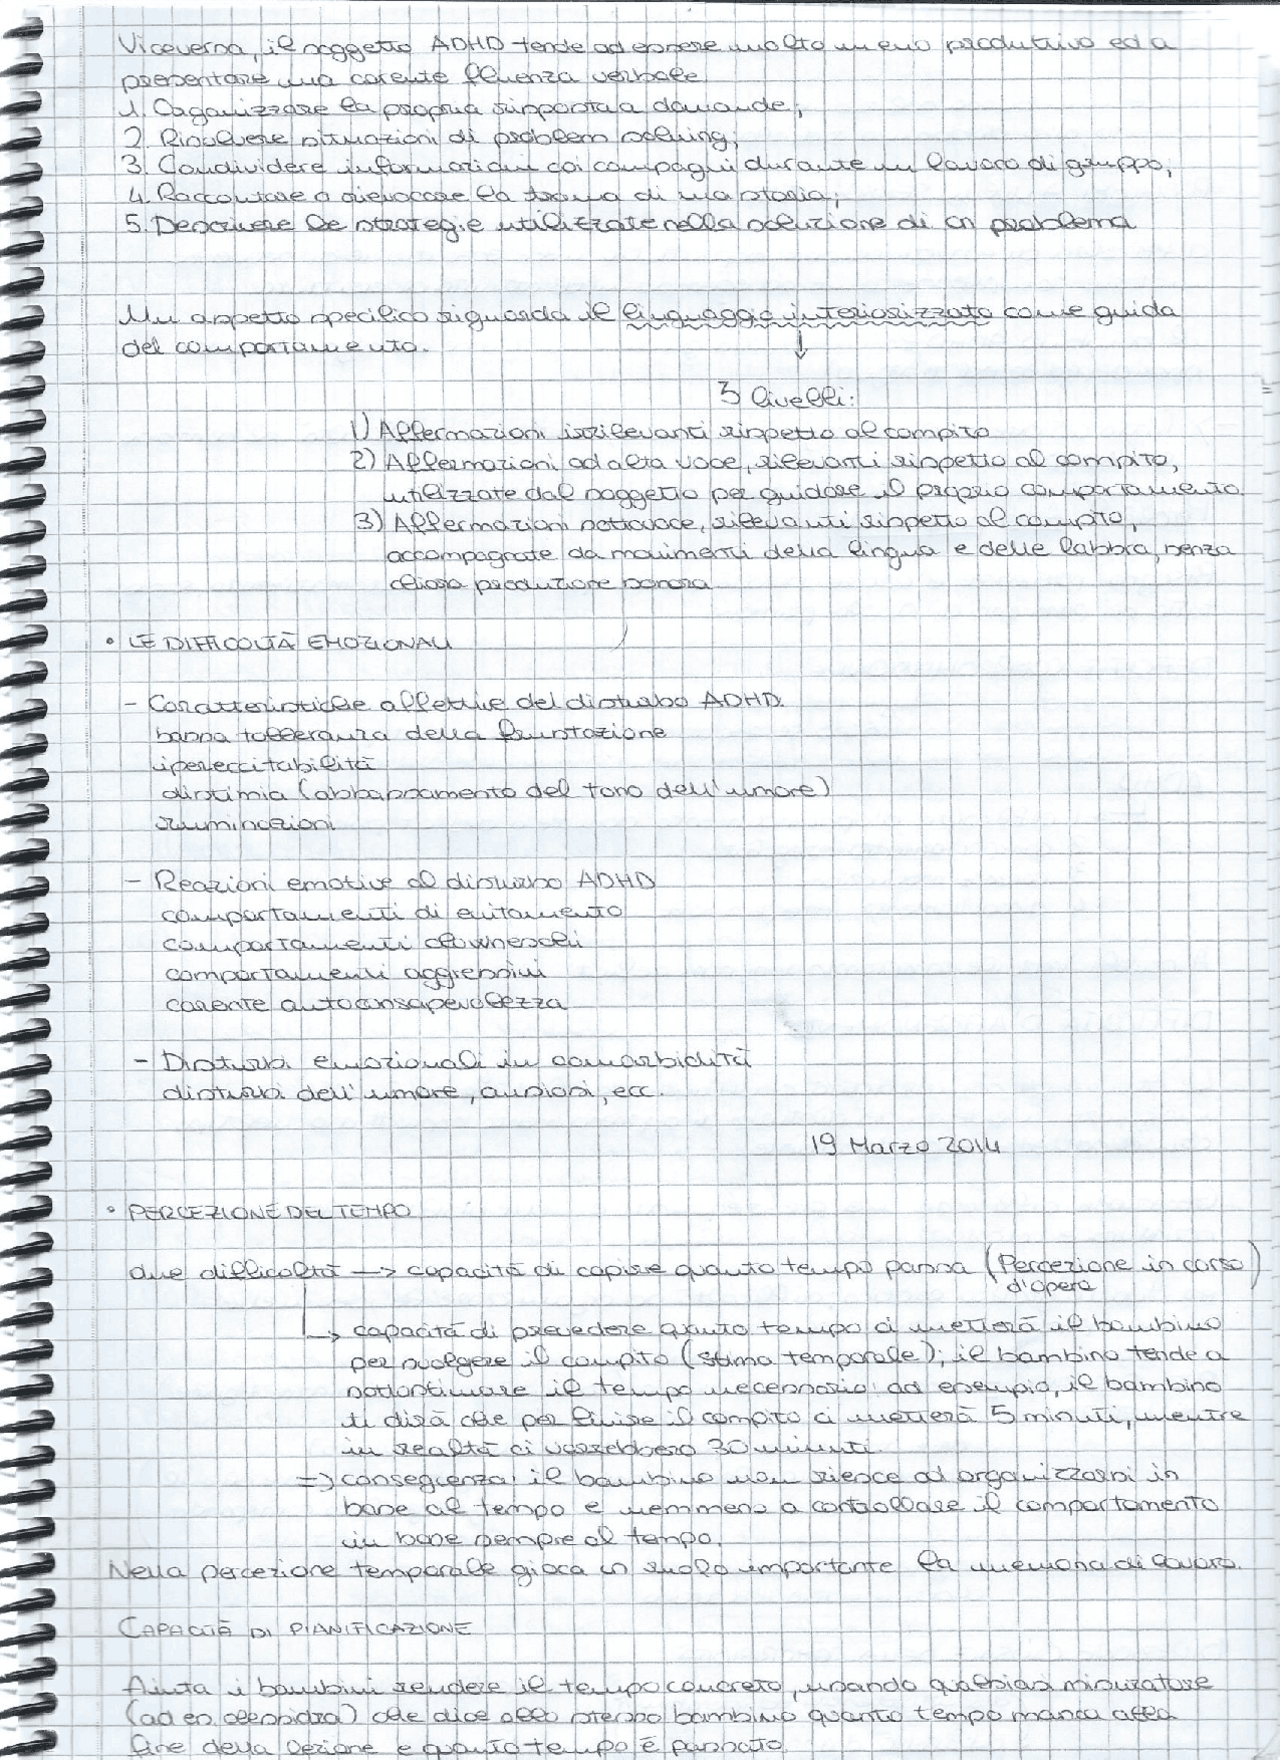 Viceversa, il soggetto ADHD tende ad essere molto meno produttivo ed a
presentare una carente fluenza verbale
1. Organizzare la propria risposta a domande;
2. Risolvere situazioni di problem solving;
3. Condividere informazioni coi compagni durante un lavoro di gruppo;
4. Raccontare o rievocare la trama di una storia;
5. Descrivere le strategie utilizzate nella soluzione di un problema
Un aspetto specifico riguarda il linguaggio interiorizzato come guida
del comportamento.
↓
3 livelli:
1) Affermazioni irrilevanti rispetto al compito
2) Affermazioni ad alta voce, rilevanti rispetto al compito,
utilizzate dal soggetto per guidare il proprio comportamento.
3) Affermazioni sottovoce, rilevanti rispetto al compito,
accompagnate da movimenti della lingua e delle labbra, senza
chiara produzione sonora
• LE DIFFICOLTÀ EMOZIONALI
- Caratteristiche affettive del disturbo ADHD.
bassa tolleranza della frustazione
ipereccitabilità
distimia (abbassamento del tono dell'umore)
ruminazioni
- Reazioni emotive al disturbo ADHD
comportamenti di evitamento
comportamenti clowneschi
comportamenti aggressivi
carente autoconsapevolezza
- Disturbi emozionali in comorbidità
disturbi dell'umore, ansiosi, ecc.
19 Marzo 2014
• PERCEZIONE DEL TEMPO
due difficoltà → capacità di capire quanto tempo passa (Percezione in corso
d'opera)
↳ capacità di prevedere quanto tempo ci metterà il bambino
per svolgere il compito (stima temporale); il bambino tende a
sottostimare il tempo necessario: ad esempio, il bambino
ti dirà che per finire il compito ci metterà 5 minuti, mentre
in realtà ci vorrebbero 30 minuti.
⇒ conseguenza: il bambino non riesce ad organizzarsi in
base al tempo e nemmeno a controllare il comportamento
in base sempre al tempo.
Nella percezione temporale gioca un ruolo importante la memoria di lavoro.
CAPACITÀ DI PIANIFICAZIONE
Aiuta i bambini rendere il tempo concreto, usando qualsiasi misuratore
(ad es. clessidra) che dice allo stesso bambino quanto tempo manca alla
fine della lezione e quanto tempo è passato.